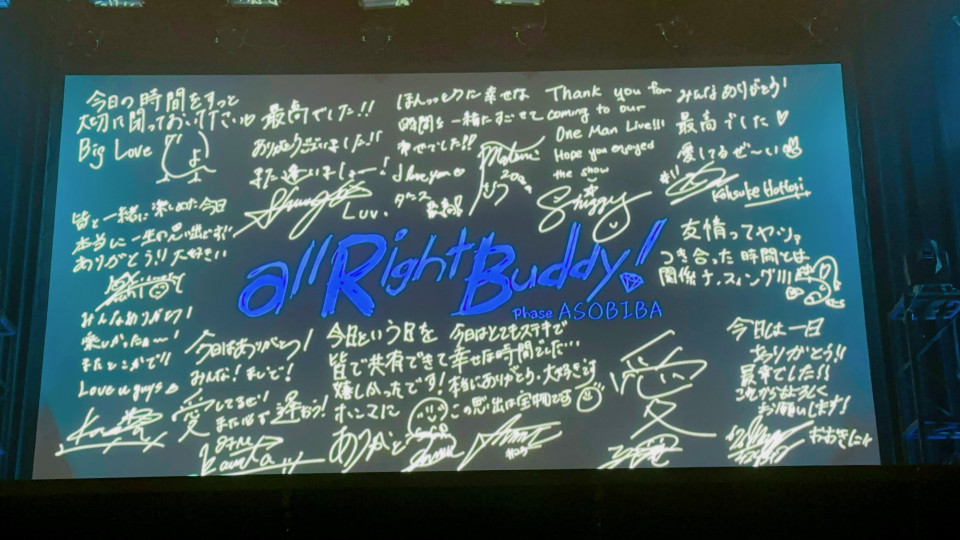 今日の時間をずっと
大切に閉まっておいて下さいね
Big Love
最高でした!!
ありがとうございました!!
また逢いましょー!
Luv.
ほんっっとうに幸せな
時間を一緒にすごせて
幸せでした!!
I love you
Thank you for
coming to our
One Man Live!!!
Hope you enjoyed
the show
Shiggy
みんなありがとう!
最高でした♡
愛してるぜ〜い
Kohsuke Hattori
皆と一緒に楽しめた今日
本当に一生の思い出です!!
ありがとう!!大好きい
all Right Buddy!
Phase ASOBIBA
友情ってヤツァ
つき合った時間とは
関係ナッスィング!!!
みんなありがとう!
楽しかったぁ〜!
またどこかで!!
Love u guys
今日はありがとう!
みんな!まいど!
愛してるぜ!
また必ず逢おう!
今日という日を
皆で共有できて
嬉しかったです!
ホンマに
ありがと
今日はとてもステキで
幸せな時間でした…
本当にありがとう、大好きです
この思い出は宝物です
愛
今日は一日
ありがとう!!
最幸でした!!
これからもよろしく
お願いします!
おおきに